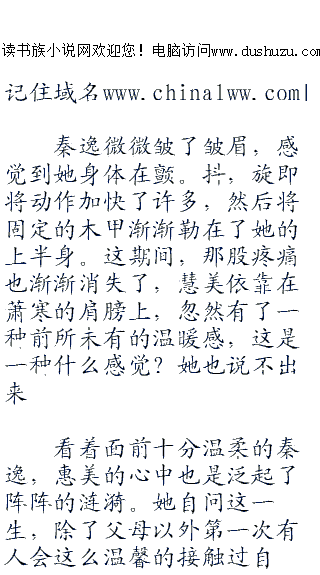 读书族小说网欢迎您！电脑访问www.dushuzu.com
记住域名www.chinalww.com|
秦逸微微皱了皱眉，感
觉到她身体在颤。抖，旋即
将动作加快了许多，然后将
固定的木甲渐渐勒在了她的
上半身。这期间，那股疼痛
也渐渐消失了，慧美依靠在
萧寒的肩膀上，忽然有了一
种前所未有的温暖感，这是
一种什么感觉？她也说不出
来
看着面前十分温柔的秦
逸，惠美的心中也是泛起了
阵阵的涟漪。她自问这一
生，除了父母以外第一次有
人会这么温馨的接触过自